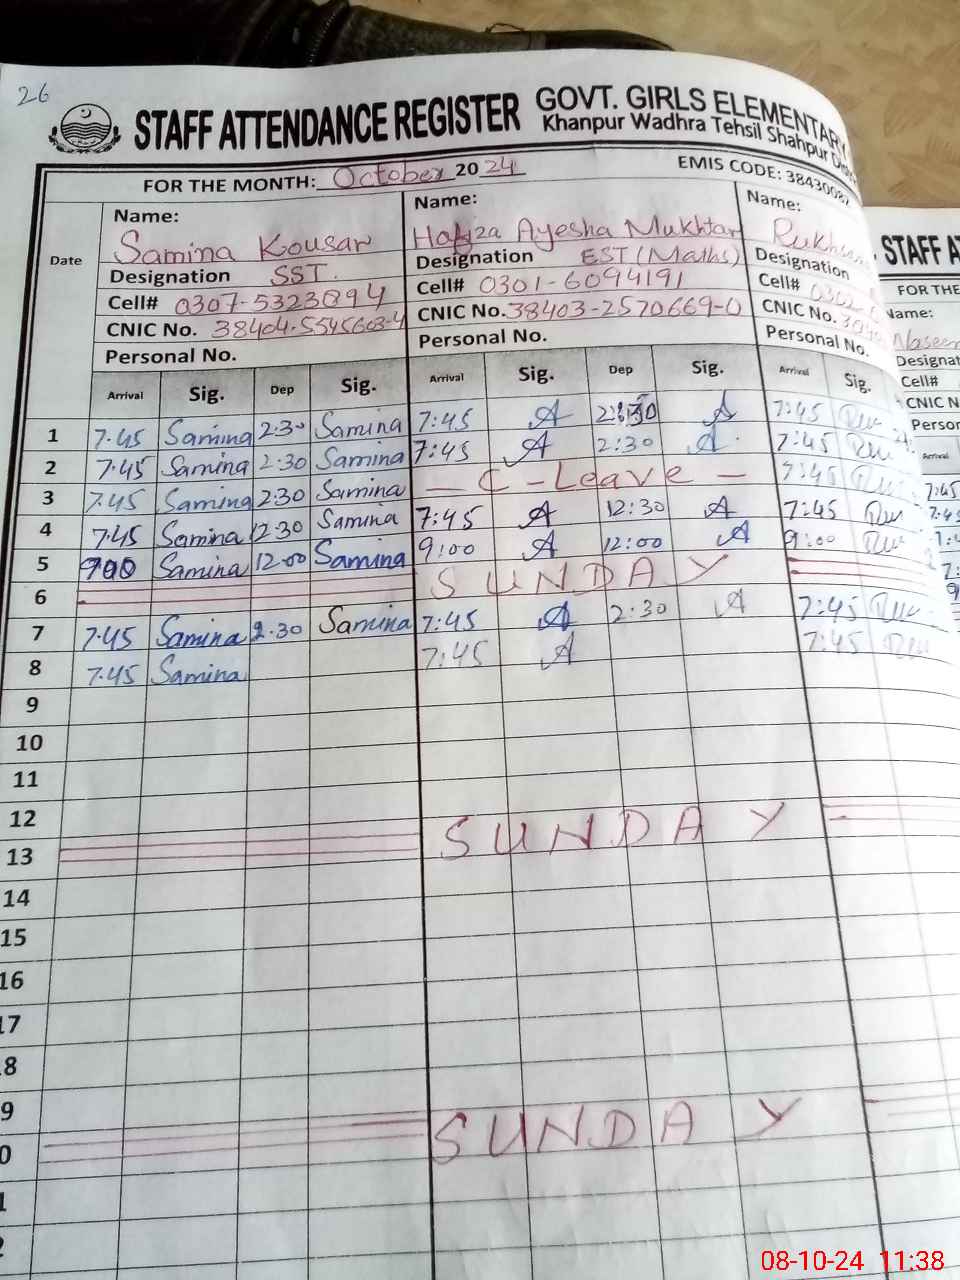 26
STAFF ATTENDANCE REGISTER GOVT. GIRLS ELEMENTARY
Khanpur Wadhra Tehsil Shahpur
FOR THE MONTH: October 2024 EMIS CODE: 3843008
Date
Name: Samina Kousar
Designation SST.
Cell# 0307-5323894
CNIC No. 38404-5545603-4
Personal No.
Name: Hafiza Ayesha Mukhtar
Designation EST (Maths)
Cell# 0301-6094191
CNIC No. 38403-2570669-0
Personal No.
Name:
Designation
Cell#
CNIC No.
Personal No.
Arrival Sig. Dep Sig. Arrival Sig. Dep Sig. Arrival Sig.
1 7.45 Samina 2.30 Samina 7:45 A 2:30 A 7:45
2 7.45 Samina 2.30 Samina 7:45 A 2:30 A 7:45
3 7.45 Samina 2.30 Samina - C - Leave - 7:45
4 7.45 Samina 12.30 Samina 7:45 A 12:30 A 7:45
5 900 Samina 12.00 Samina 9:00 A 12:00 A 9:00
6 SUNDAY
7 7.45 Samina 2.30 Samina 7:45 A 2:30 A 7:45
8 7.45 Samina 7:45 A 7:45
9
10
11
12
13 SUNDAY
14
15
16
17
8
9
0 SUNDAY
1
2
STAFF
FOR THE
Name:
Designat
Cell#
CNIC N
Person
Arrival
7:45
08-10-24 11:38